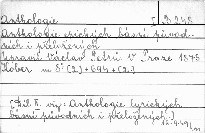 Anthologie I B 248
Anthologie epických básní původ-
ních i přeložených
Sepsani Václav Petrů v Praze 1878
Kober m 8° (2) + 694 + (2.)
(Díl II. viz: Anthologie lyrických
básní původních i přeložených.)